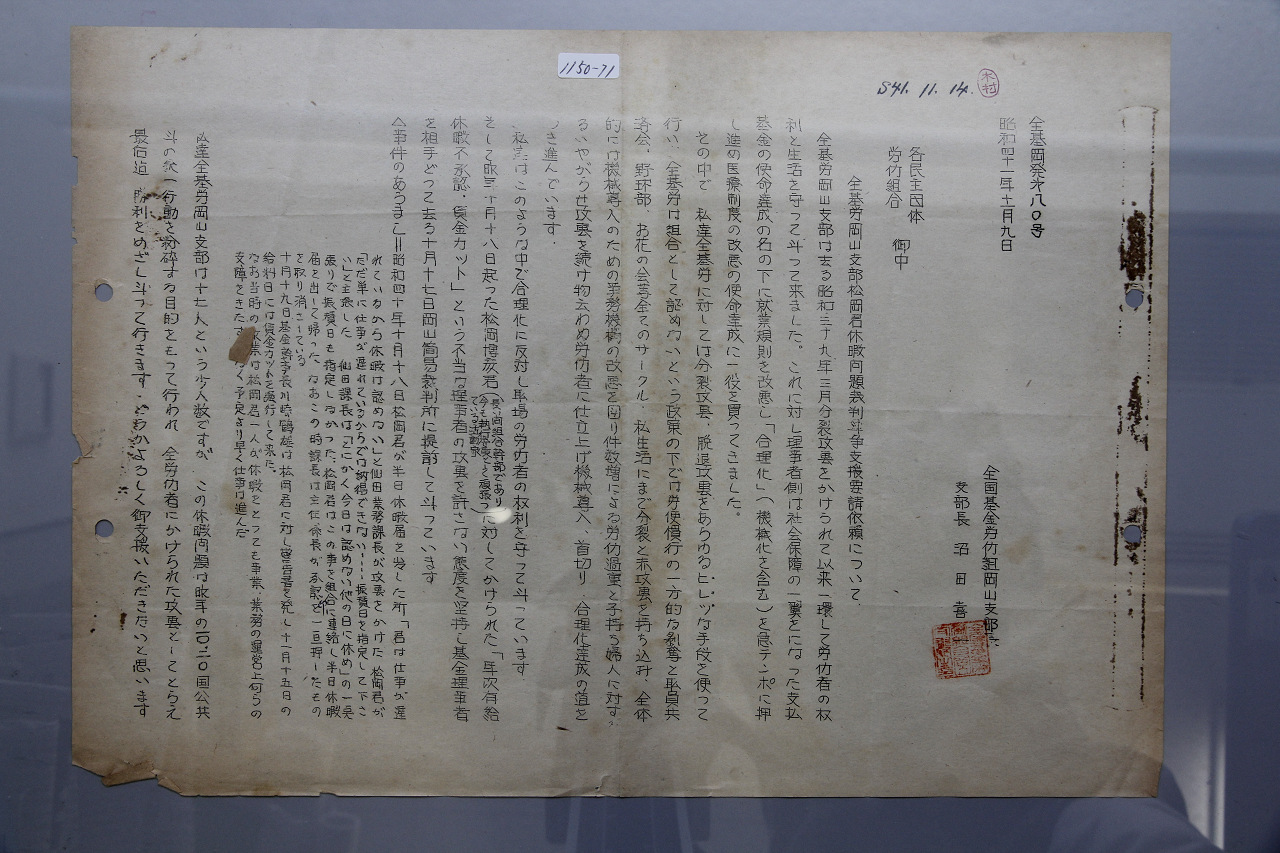 1150-71
S41. 11. 14.
木村
全基岡発才八〇号
昭和四十一年十一月九日
各民主団体
労仂組合 御中
全国基金労仂組岡山支部
支部長 沼田喜一
全基労岡山支部松岡君休暇向題裁判斗争支援要請依頼について、
全基労岡山支部は去る昭和三十九年三月分裂攻裏をかけられて以来一環して労仂者の权
利と生活を守って斗って来ました。これに対し理事者側は社会保障の一翼をになった支払
基金の使命達成の名の下に就業規則を改悪し「合理化」(機械化を含む)を急テンポに押
し進め医療制度の改悪の使命達成に一役を買ってきました。
その中で、私達全基労に対しては分裂攻裏、脱退攻裏をあらゆるヒレツな手段を使って
行い、全基労は組合として認めないという政策の下で労使慣行の一方的な剝奪と取員共
済会、野球部、お花の会等全てのサークル、私生活にまで分裂と赤攻裏を持ち込み、全体
的には機械導入のための事務機構の改悪を図り件数増による労仂過重と子持ち婦人に対す
るいやがらせ攻裏を続け物云わぬ労仂者に仕立上げ機械導入、首切り、合理化達成の道を
つき進んでいます。
私達はこのような中で合理化に反対し取場の労仂者の权利を守って斗っています
そして昨年十月十八日起った松岡博友君(長い间組合幹部であり今も书記長として頑張っている活動家)に対してかけられた「年次有給
休暇不承認・賃金カット」という不当な理事者の攻裏を許さない態度を堅持し基金理事者
を相手どって去る十月十七日岡山簡易裁判所に提訴して斗っています
今事件のあらまし=昭和四十年十月十八日松岡君が半日休暇届を発した所「君は仕事が遅
れているから休暇は認めない」と仙田業務課長が攻裏をかけた 松岡君が
「ただ単に仕事が遅れているからでは納得できない……振替日を指定して下さ
い」と主張した 仙田課長は「とにかく今日は認めない他の日に休め」の一点
張りで振替日も指定しなかった、松岡君はこの事を組合に連絡し半日休暇
届を出して帰った、なおこの時課長は主任係長が承認印を一旦押したもの
を取り消さしている
十月十九日基金幹事長川崎鶴雄は松岡君に対し警告書を発し十一月十五日の
給料日には賃金カットを強行して来た。
なお当時の取業は松岡君一人が休暇をとっても事業、業務の運営上何らの
支障をきたす なく予定より早く仕事は進んだ
私達全基労岡山支部は十七人という少人数ですが、この休暇向題は昨年の一〇・二〇国公共
斗の統一行動を粉砕する目的をもって行われ、全労仂者にかけられた攻裏としてとらえ
最后迠 勝利をめざし斗って行きます。どうかよろしく御支援いただきたいと思います